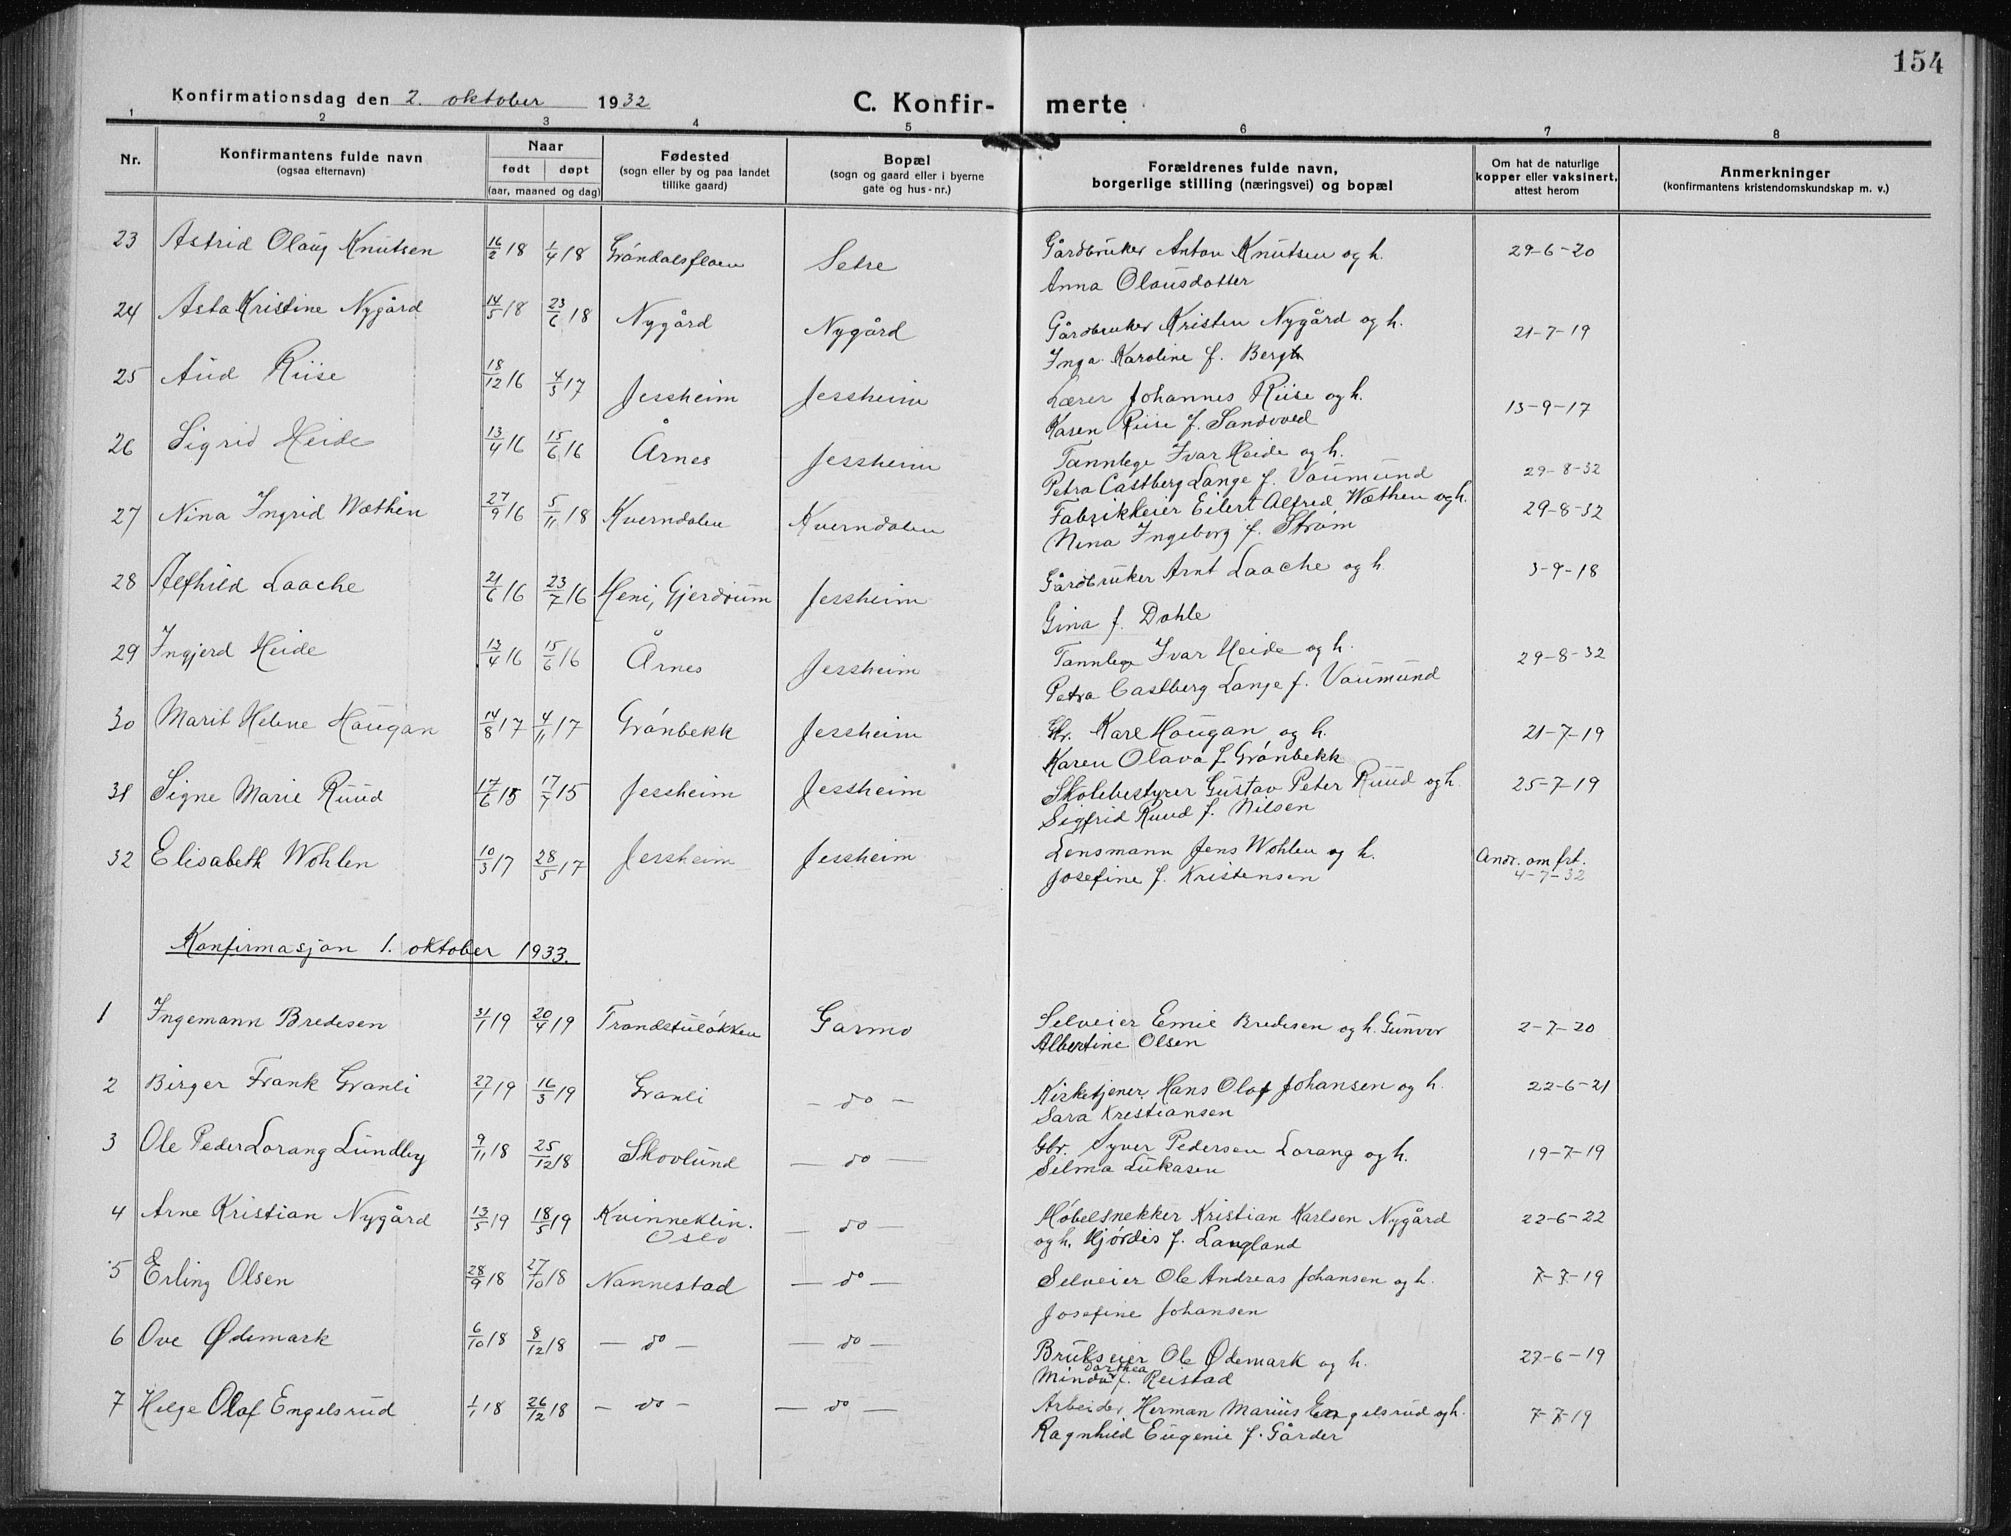 154
Konfirmationsdag den 2. oktober 1932
C. Konfir- merte
1 2 3 4 5 6 7 8
Nr.
Konfirmantens fulde navn
(ogsaa efternavn)
Naar
født døpt
(aar, maaned og dag)
Fødested
(sogn eller by og paa landet
tillike gaard)
Bopæl
(sogn og gaard eller i byerne
gate og hus-nr.)
Forældrenes fulde navn,
borgerlige stilling (næringsvei) og bopæl
Om hat de naturlige
kopper eller vaksinert,
attest herom
Anmerkninger
(konfirmantens kristendomskundskap m. v.)
23 Astrid Olaug Knutsen 16/2 18 1/4 18 Gróndalsfloen Setre Gårdbruker Anton Knutsen og h. 29-6-20
Anna Olausdotter
24 Asta Kristine Nygård 14/5 18 23/6 18 Nygård Nygård Gårdbruker Kristen Nygård og h. 21-7-19
Inga Karoline f. Bergh
25 Aud Riise 18/12 16 4/3 17 Jessheim Jessheim Lærer Johannes Riise og h. 13-9-17
Karen Riise f. Sandvold
26 Sigrid Heide 13/4 16 15/6 16 Årnes Jessheim Tannlege Ivar Heide og h. 29-8-32
Petra Castberg Lange f. Vaumund
27 Nina Ingrid Wæthin 27/9 16 5/11 18 Kverndalen Kverndalen Fabrikkeier Eilert Alfred Wæthen og h. 29-8-32
Nina Ingeborg f. Strøm
28 Alfhild Laache 21/6 16 23/7 16 Heni, Gjerdrum Jessheim Gårdbruker Arnt Laache og h. 3-9-18
Gina f. Dahle
29 Ingjerd Heide 13/4 16 15/6 16 Årnes Jessheim Tannlege Ivar Heide og h. 29-8-32
Petra Castberg Lange f. Vaumund
30 Marit Helene Haugan 14/8 17 4/11 17 Grónbekk Jessheim Gbr. Karl Haugan og h. 21-7-19
Karen Olava f. Grónbekk
31 Signe Marie Ruud 17/6 15 17/7 15 Jessheim Jessheim Skolebestyrer Gustav Peter Ruud og h. 25-7-19
Sigfrid Ruud f. Nilsen
32 Elisabeth Wohlen 10/3 17 28/5 17 Jessheim Jessheim Lensmann Jens Wohlen og h. Andr. om frt.
Josefine f. Kristensen 4-7-32
Konfirmasjon 1. oktober 1933.
1 Ingemann Bredesen 31/1 19 20/4 19 Trandstulókken Garmo Selveier Emil Bredesen og h. Gunvor 2-7-20
Albertine Olsen
2 Birger Frank Granli 27/1 19 16/3 19 Granli — do — Kirketjener Hans Olaf Johansen og h. 22-6-21
Sara Kristiansen
3 Ole Peder Lorang Lundby 9/11 18 25/12 18 Skovlund — do — Gbr. Syver Pedersen Lorang og h. 19-7-19
Selma Lukasen
4 Arne Kristian Nygård 13/5 19 18/5 19 Kvinneklin. — do — Móbelsnekker Kristian Karlsen Nygård 22-6-22
Oslo og h. Hjórdis f. Langland
5 Erling Olsen 28/9 18 27/10 18 Nannestad — do — Selveier Ole Andreas Johansen og h. 7-7-19
Josefine Johansen
6 Ove Ødemark 6/10 18 8/12 18 — do — — do — Brukseier Ole Ødemark og h. 27-6-19
Dorthea
Minda f. Reistad
7 Helge Olaf Engelsrud 1/1 18 26/12 18 — do — — do — Arbeider Herman Marius Engelsrud og h. 7-7-19
Ragnhild Eugenie f. Gårder